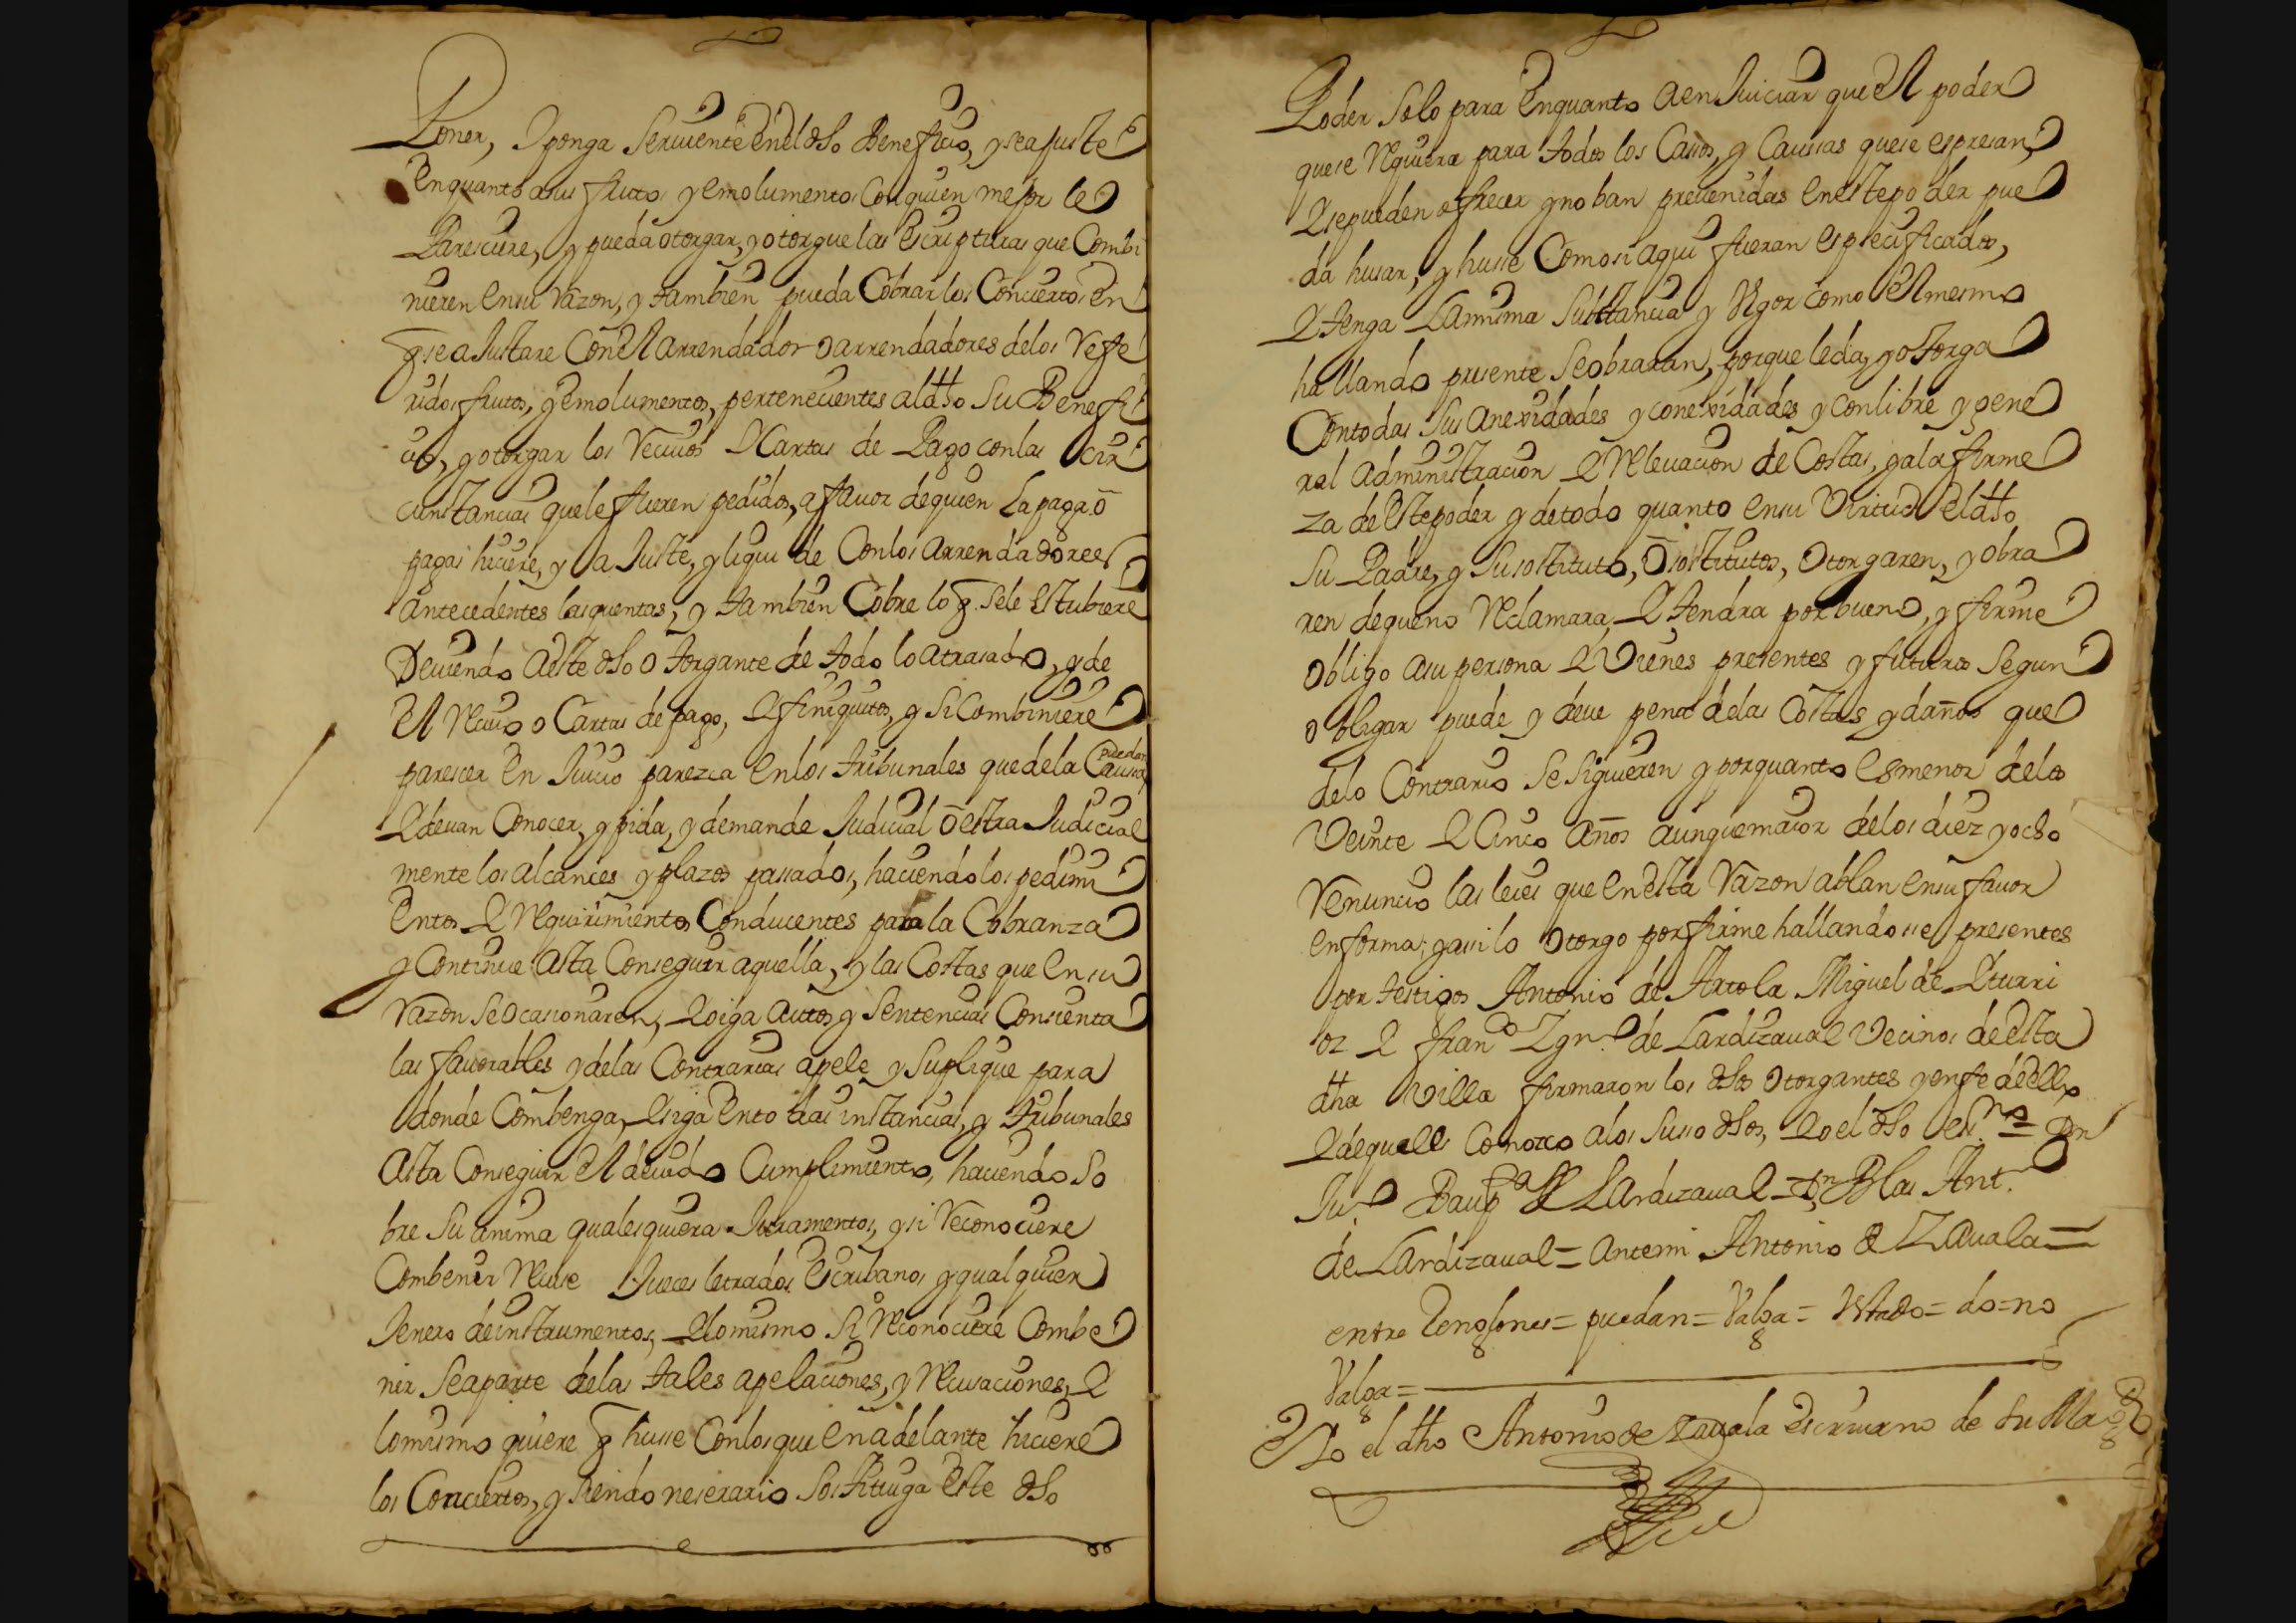 Poner, y ponga serviente en el dho Beneficio, y se ajuste
en quanto a sus frutos y emolumentos con quien mejor le
Paresciere, y pueda otorgar, y otorgue las escripturas que Combi
nieren en su razon, y tambien pueda Cobrar los Conciertos en
q̃ se a Justare Con el Arrendador o arrendadores de los refe
ridos frutos, y emolumentos, pertenecientes al dho Su Benefi
cio, y otorgar los recivos y Cartas de Pago con las cir
cunstancias que le fueren pedidos, a favor de quien la paga õ
pagas hiciere, y a Juste, y liquide Con los arrendadores
antecedentes las quentas, y tambien Cobre lo q̃ se le estubiere
Deviendo a este dho otorgante de todo lo atrasado, y de
el recivo o Cartas de pago, y finiquitos, y si Combiniere
parescer en Juicio parezca en los tribunales que de la Caussa puedan
y devan Conocer, y pida, y demande Judicial õ estra Judicial
mente los alcances y plazos passados, haciendo los pedimi
entos y requirimientos Conducentes para la Cobranza
y Continue asta Conseguir aquella, y las Costas que en su
razon se ocasionaren, y oiga autos y sentencias Consienta
las favorables y de las Contrarias apele y suplique para
donde Combenga, y siga en todas instancias, y tribunales
asta Conseguir el devido Cumplimiento, haciendo so
bre su anima qualesquiera Juramentos, y si reconociere
Combenir recuse Jueces letrados escribanos y qualquier
Jenero de instrumentos, y lo mismo si reconociere Combe
nir se aparte de las tales apelaciones, y recusaciones, y
lo mismo quiere q̃ husse Con los que en adelante hiciere
los Conciertos, y siendo neserario sostituga este dho
Poder solo para en quanto a enJuiciar que el poder
que se requiera para todos los Casos, y Caussas que se espresan,
y se pueden ofrecer y no ban prevenidas en este poder pue
da husar, y husse Como si aqui fueran especificados,
y tenga la misma substancia y vigor como el mesmo
hallando presente se obraran, porque le da, y otorga
Con todas sus anexidades y conexidades y con libre y gene
ral administracion y relevacion de Costas, y a la firme
za de este poder y de todo quanto en su virtud el dho
su Padre, y su sostituto, õ sostitutos, otorgaren, y obra
ren de que no reclamara, y tendra por bueno, y firme
obligo a su persona y vienes presentes y futuros segun
obligar puede y deve pena de las Costas y daños que
de lo Contrario se siguieren y por quanto es menor de los
veinte y cinco años aunque maior de los diez y ocho
renuncio las leies que en esta razon ablan en su favor
en forma; y assi lo otorgo por firme hallandosse presentes
por testigos Antonio de Arcola Miguel de Yturri
oz y Fran.co Ygn.o de Lardizaval vecinos de esta
dha villa firmaron los dhos otorgantes y en fe de ello
y de que les Conozco a los suso dhos, yo el dho es.no = Dn
Ju.o Baup.ta de Lardizaval = Dn Blas Ant.o
de Lardizaval = ante mi Antonio de Zavala =
entre renglones = puedan = Valga = testado = do = no
Valga =
Yo el dho Antonio de Zavala escrivano de su Mag.d